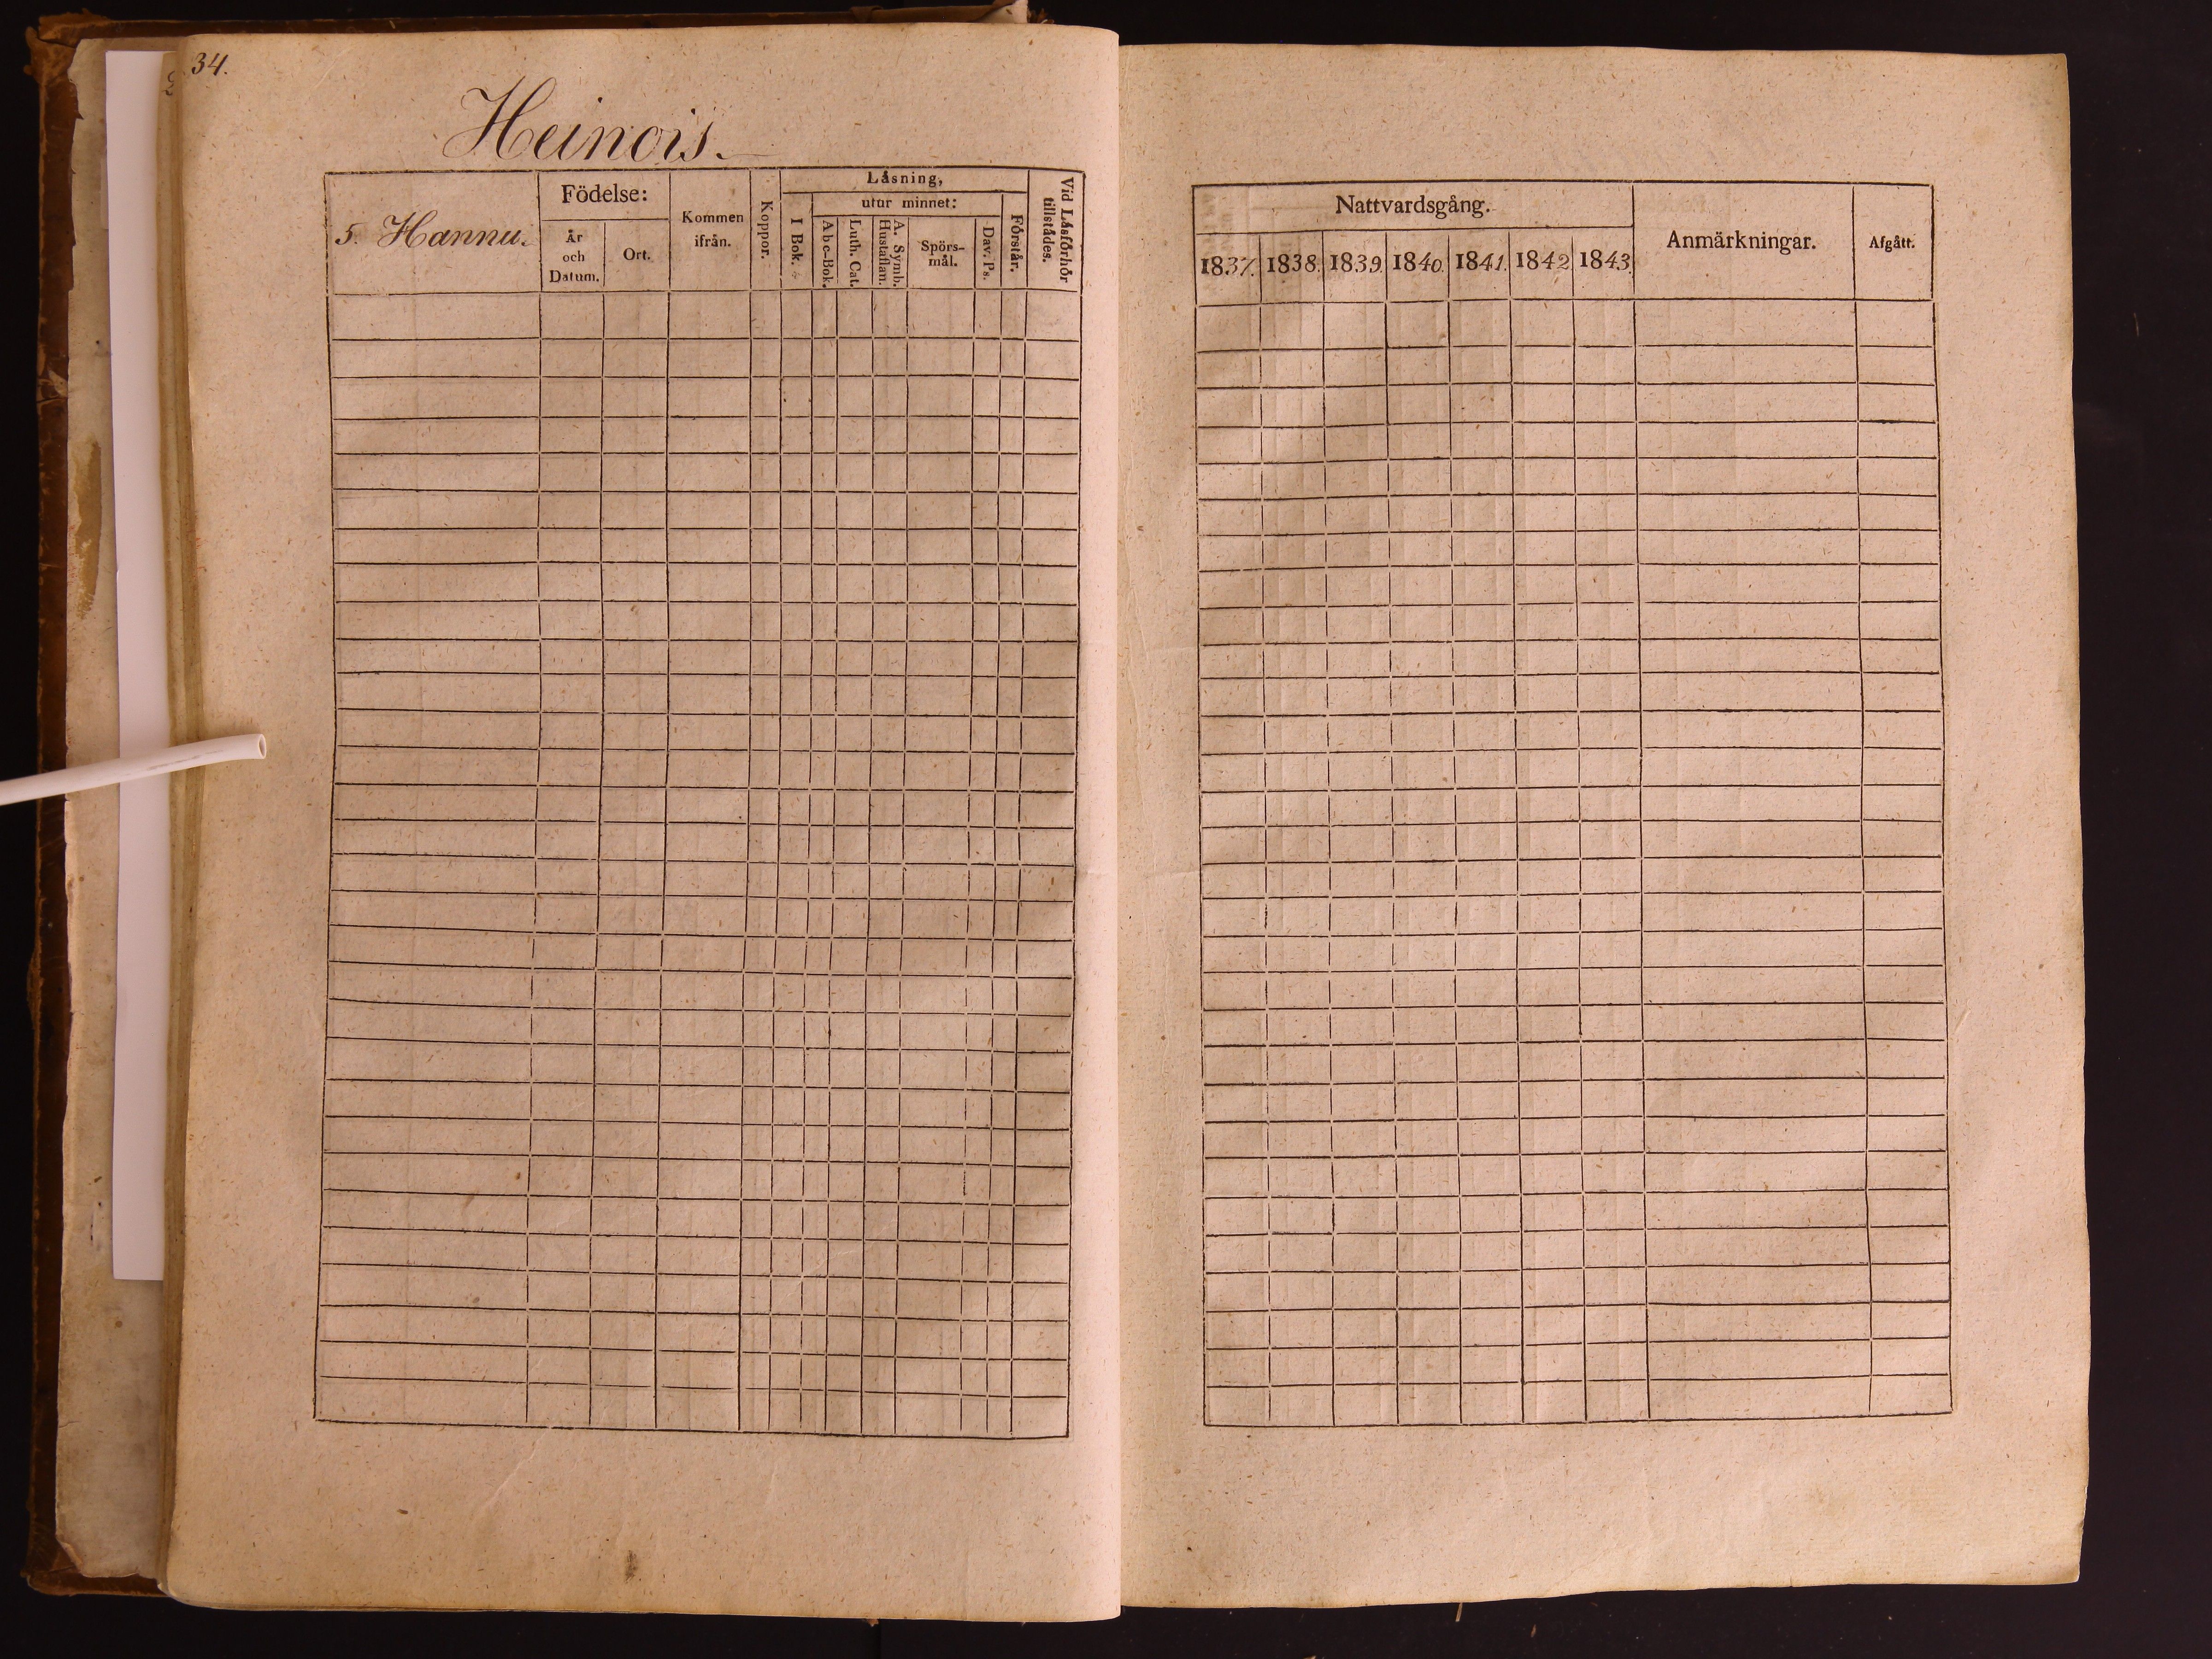 34.
Heinois.
5. Hannu.
Födelse:
År
och
Datum.
Ort.
Kommen
ifrån.
Koppor.
Läsning,
I Bok.
utur minnet:
Abc-Bok.
Luth. Cat.
A. Symb.
Hustaflan.
Spörs-
mål.
Dav. Ps.
Förstår.
Vid Läsförhör
tillstädes.
Nattvardsgång.
1837. 1838. 1839. 1840. 1841. 1842 1843.
Anmärkningar.
Afgått.